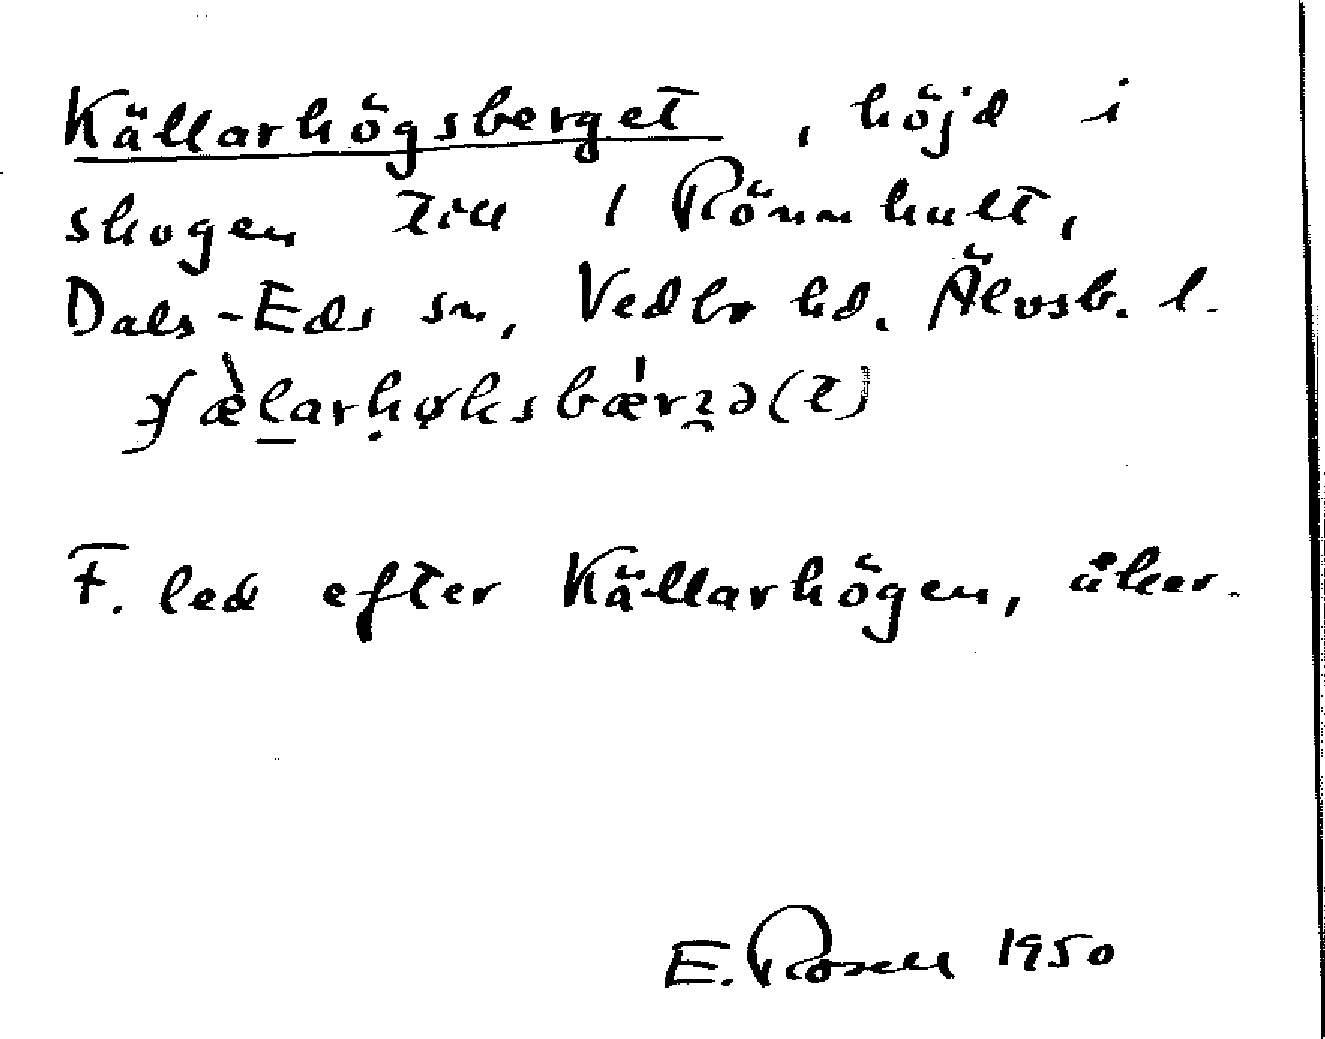 Källarhögsberget, höjd i
skogen till 1 Rönnhult,
Dals-Eds sn, Vedbo hd. Älvsb. l.
F. led efter Källarhögen, åker.
E. Rosell 1950